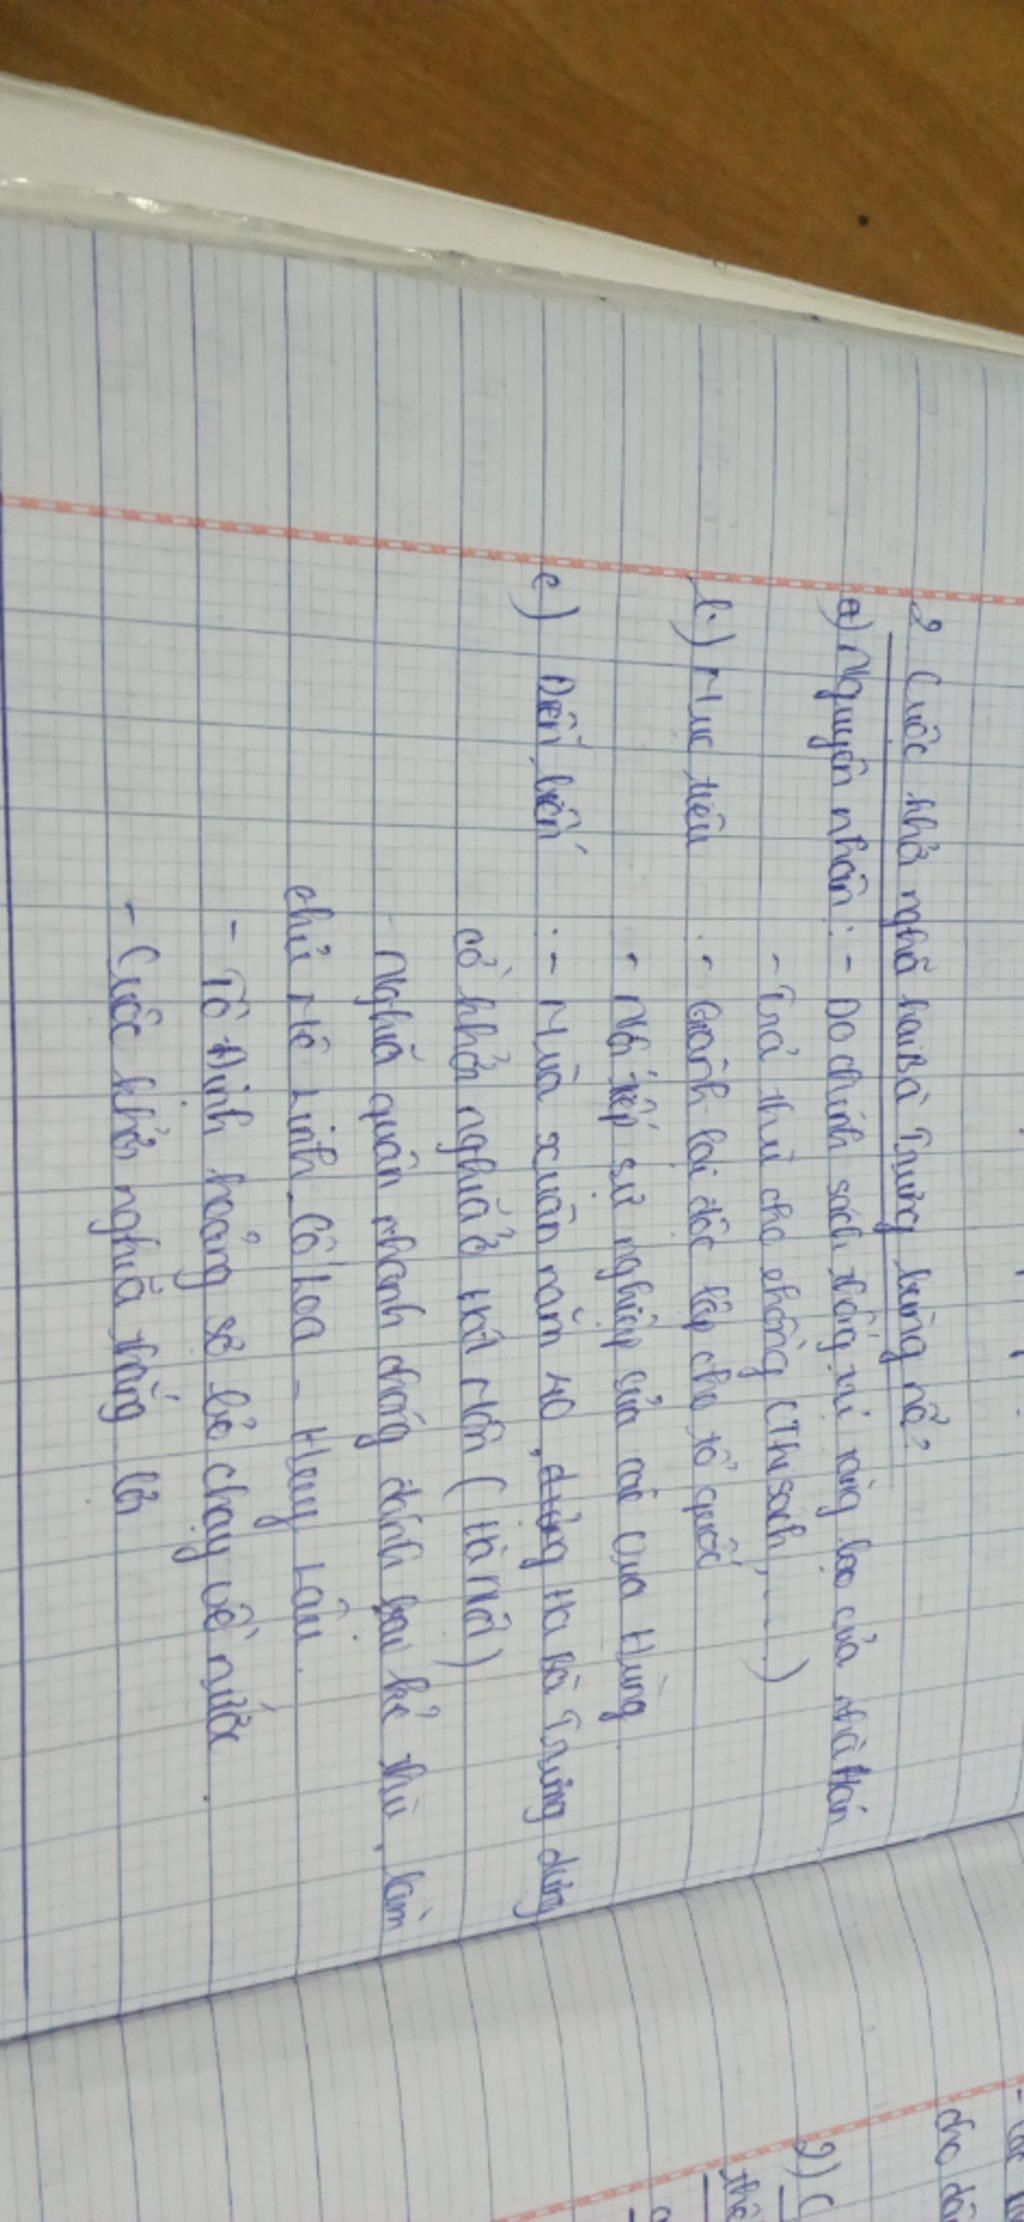 2 Cuộc khở nghĩa hai Bà Trưng bùng nổ?
a) Nguyên nhân: - Do chính sách thống trị tàng bạo của nhà Hán
- Trả thù cho chồng (Thi sách, ...)
b) Mục tiêu : - Giành lại độc lập cho tổ quốc
- Nối tiếp sự nghiệp của các Vua Hùng.
c) Diễn biến : - Mùa xuân năm 40, Hai Bà Trưng dừng
cờ khởi nghĩa ở Hát Môn (Hà Nội)
- Nghĩa quân nhanh chóng đánh bại kẻ thù, làm
chủ Mê Linh - Cổ Loa - Huy Lâu.
- Tô Định hoảng sợ bỏ chạy về nước.
- Cuộc khởi nghĩa thắng lợi
cho dân
2) C
thê